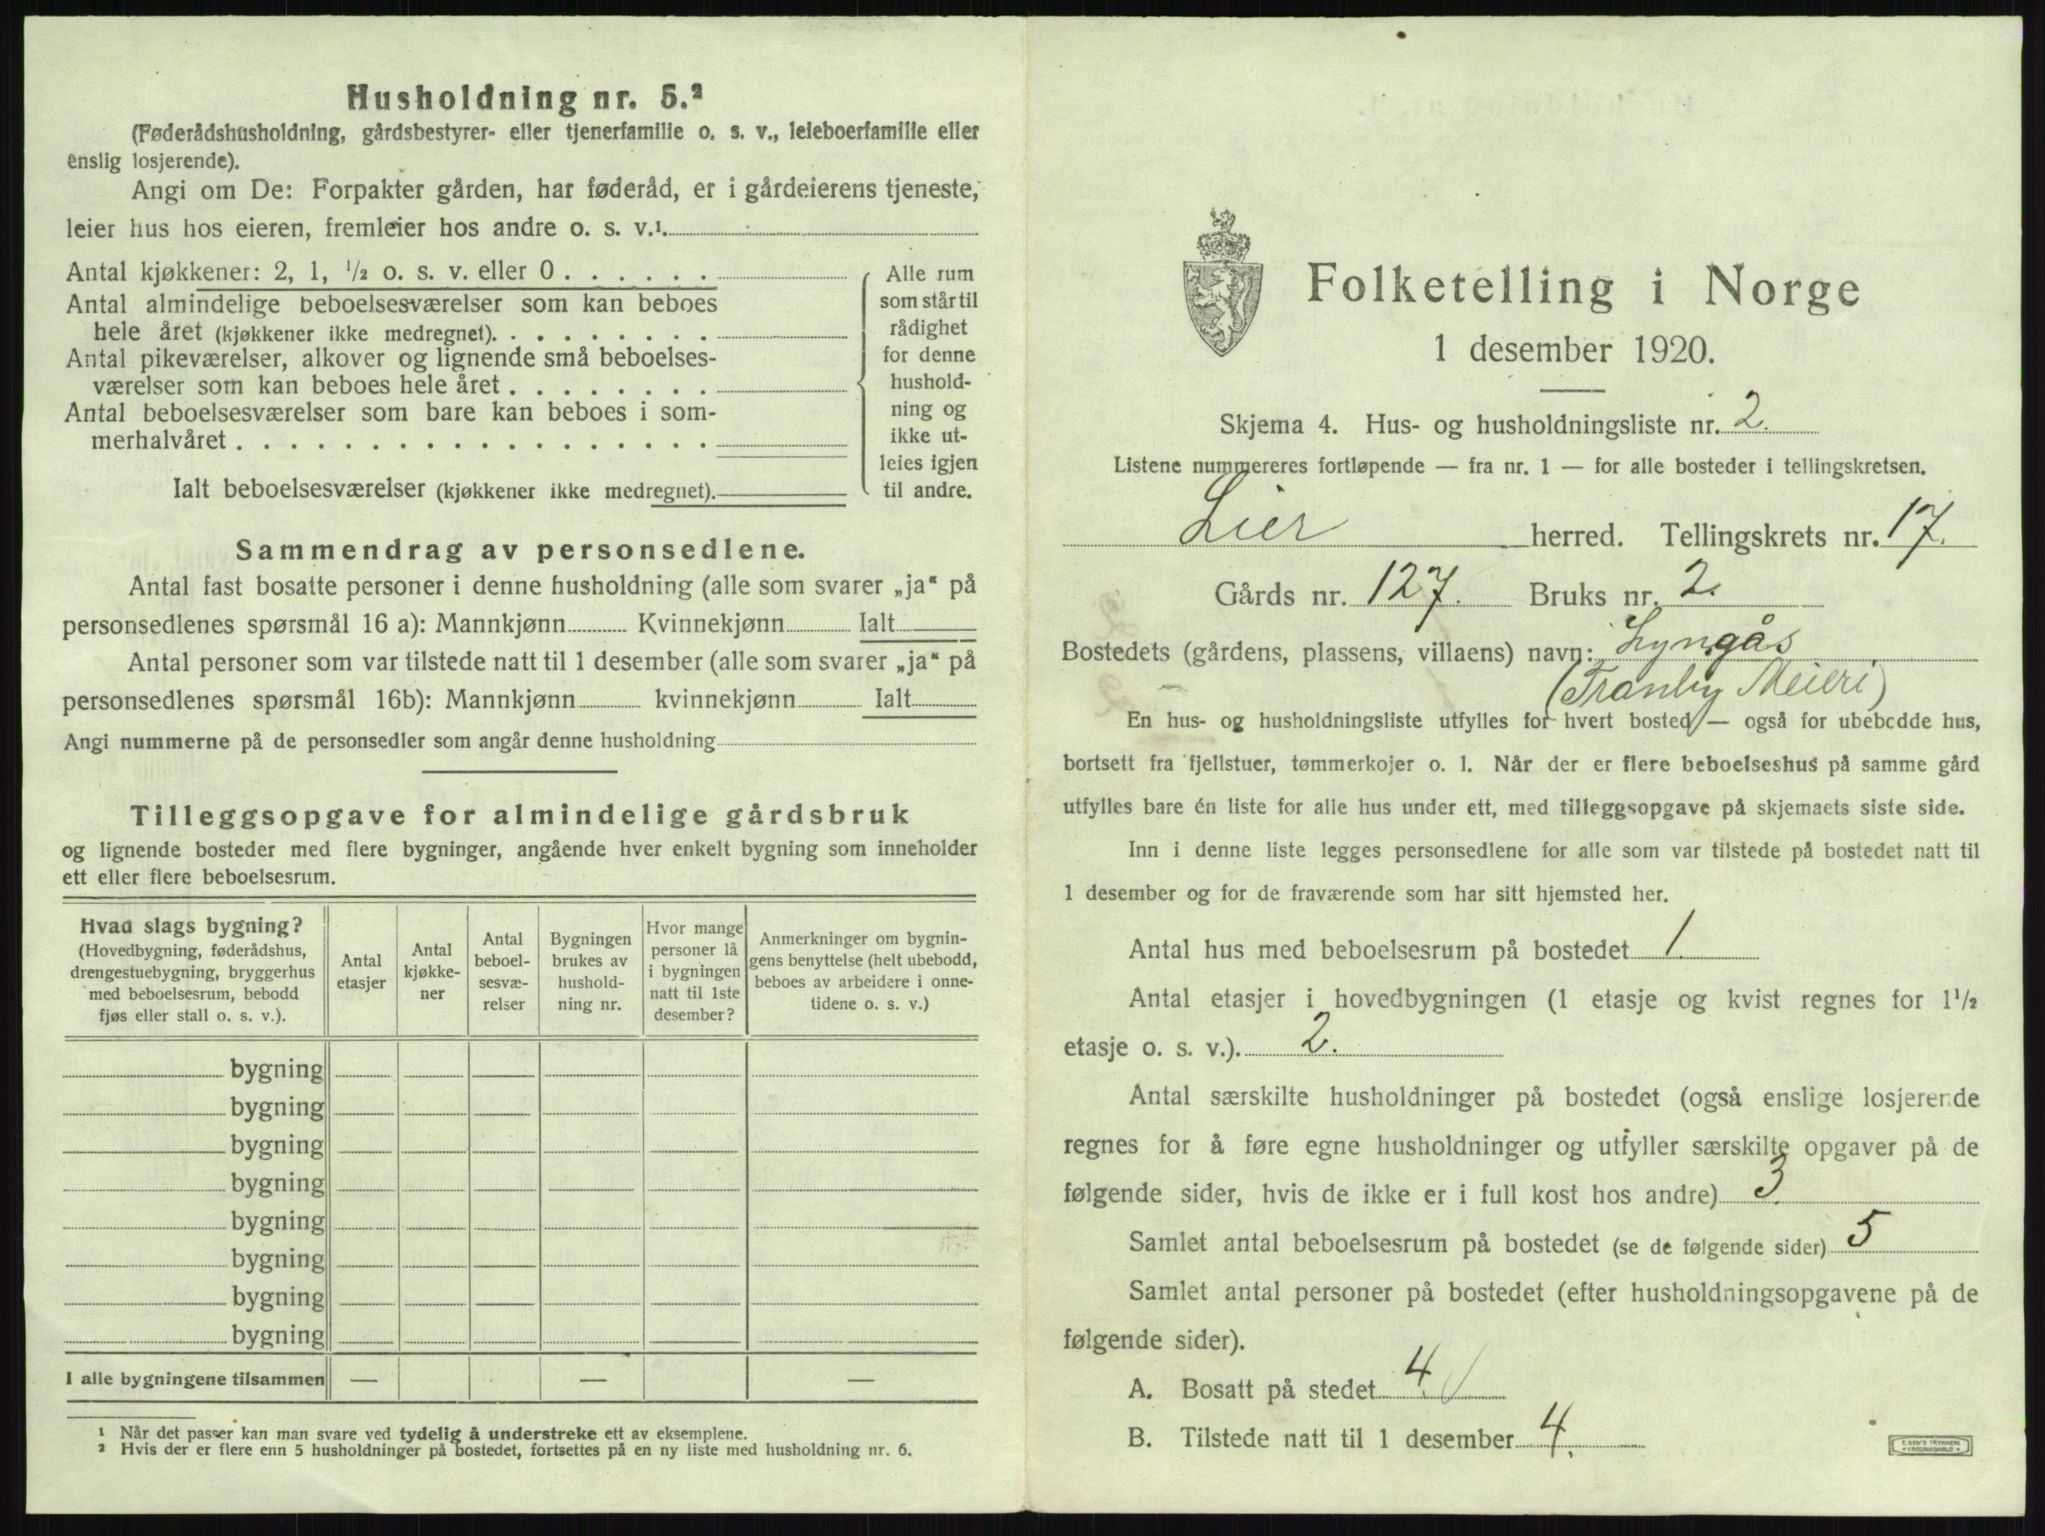 Husholdning nr. 5.²
(Føderådshusholdning, gårdsbestyrer- eller tjenerfamilie o. s. v., leieboerfamilie eller
enslig losjerende).
Angi om De: Forpakter gården, har føderåd, er i gårdeierens tjeneste,
leier hus hos eieren, fremleier hos andre o. s. v.¹
Antal kjøkkener: 2, 1, ½ o. s. v. eller 0 . . . . . .
Antal almindelige beboelsesværelser som kan beboes
hele året (kjøkkener ikke medregnet). . . . . . . . .
Antal pikeværelser, alkover og lignende små beboelses-
værelser som kan beboes hele året . . . . . . . .
Antal beboelsesværelser som bare kan beboes i som-
merhalvåret . . . . . . . . . . . . . . . . . .
Ialt beboelsesværelser (kjøkkener ikke medregnet).
Alle rum
som står til
rådighet
for denne
hushold-
ning og
ikke ut-
leies igjen
til andre.
Sammendrag av personsedlene.
Antal fast bosatte personer i denne husholdning (alle som svarer „ja“ på
personsedlenes spørsmål 16 a): Mannkjønn Kvinnekjønn Ialt
Antal personer som var tilstede natt til 1 desember (alle som svarer „ja“ på
personsedlenes spørsmål 16b): Mannkjønn kvinnekjønn Ialt
Angi nummerne på de personsedler som angår denne husholdning
Tilleggsopgave for almindelige gårdsbruk
og lignende bosteder med flere bygninger, angående hver enkelt bygning som inneholder
ett eller flere beboelsesrum.
Hvad slags bygning?
(Hovedbygning, føderådshus,
drengestuebygning, bryggerhus
med beboelsesrum, bebodd
fjøs eller stall o. s. v.).
Antal
etasjer
Antal
kjøkke-
ner
Antal
beboel-
sesvæ-
relser
Bygningen
brukes av
hushold-
ning nr.
Hvor mange
personer lå
i bygningen
natt til 1ste
desember?
Anmerkninger om bygnin-
gens benyttelse (helt ubebodd,
beboes av arbeidere i onne-
tidene o. s. v.)
bygning
bygning
bygning
bygning
bygning
bygning
bygning
bygning
I alle bygningene tilsammen — — —
¹ Når det passer kan man svare ved tydelig å understreke ett av eksemplene.
² Hvis der er flere enn 5 husholdninger på bostedet, fortsettes på en ny liste med husholdning nr. 6.
Folketelling i Norge
1 desember 1920.
Skjema 4. Hus- og husholdningsliste nr. 2.
Listene nummereres fortløpende — fra nr. 1 — for alle bosteder i tellingskretsen.
Lier herred. Tellingskrets nr. 17.
Gårds nr. 127. Bruks nr. 2.
Bostedets (gårdens, plassens, villaens) navn: Lyngås
(Tranby Meieri)
En hus- og husholdningsliste utfylles for hvert bosted — også for ubebodde hus,
bortsett fra fjellstuer, tømmerkojer o. l. Når der er flere beboelseshus på samme gård
utfylles bare én liste for alle hus under ett, med tilleggsopgave på skjemaets siste side.
Inn i denne liste legges personsedlene for alle som var tilstede på bostedet natt til
1 desember og for de fraværende som har sitt hjemsted her.
Antal hus med beboelsesrum på bostedet 1.
Antal etasjer i hovedbygningen (1 etasje og kvist regnes for 1½
etasje o. s. v.). 2.
Antal særskilte husholdninger på bostedet (også enslige losjerende
regnes for å føre egne husholdninger og utfyller særskilte opgaver på de
følgende sider, hvis de ikke er i full kost hos andre) 3.
Samlet antal beboelsesrum på bostedet (se de følgende sider) 5
Samlet antal personer på bostedet (efter husholdningsopgavene på de
følgende sider).
A. Bosatt på stedet 4.
B. Tilstede natt til 1 desember 4.